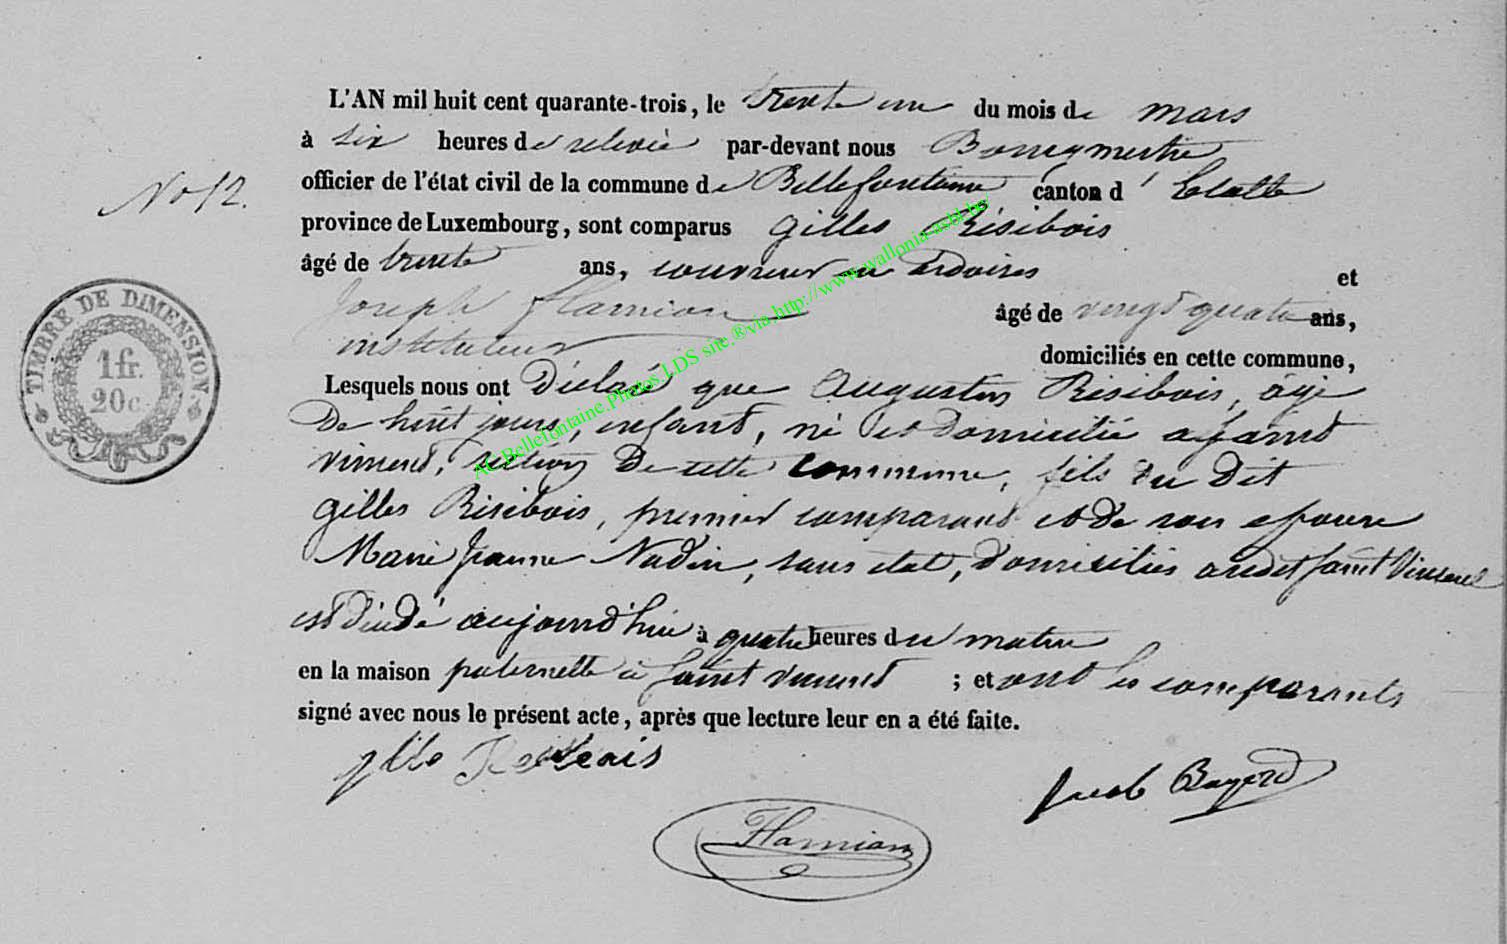 L'AN mil huit cent quarante-trois, le trente un du mois de mars
à six heures de relevée par-devant nous Bourgmestre
officier de l'état civil de la commune de Bellefontaine canton d'Etalle
No 12.
province de Luxembourg, sont comparus gilles Risibois
âgé de trente ans, couvreur en ardoises et
Joseph Hamian âgé de vingt quatre ans,
instituteur domiciliés en cette commune,
Lesquels nous ont déclaré que Augustin Risibois, âgé
De huit jours, enfant, né et domicilié a saint
vincent, section De cette commune, fils du Dit
gilles Risibois, premier comparant et de son epouse
Marie Jeanne Nadin, sans etat, domiciliés audit saint Vincent
est décédé aujourd'hui à quatre heures du matin
en la maison paternelle à saint vincent ; et ont les comparants
signé avec nous le présent acte, après que lecture leur en a été faite.
Jacob Bayard
Hamian
TIMBRE DE DIMENSION.
1 fr.
20 c.
AC.Bellefontaine.Photos.LDS site.®via.http://www.wallonia-asbl.be/